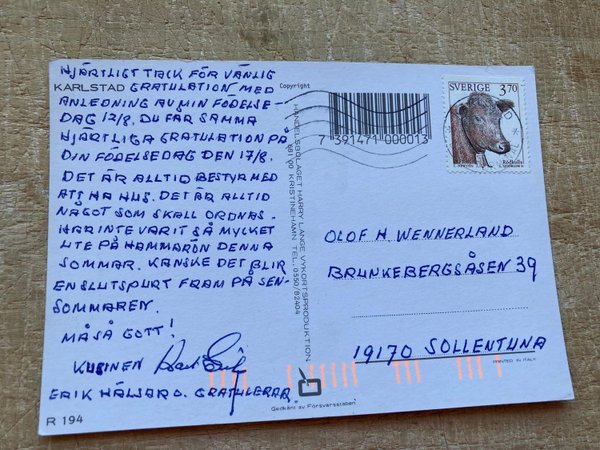 HJÄRTLIGT TACK FÖR VÄNLIG
KARLSTAD GRATULATION MED
ANLEDNING AV MIN FÖDELSE-
DAG 12/8. DU FÅR SAMMA
HJÄRTLIGA GRATULATION PÅ
DIN FÖDELSEDAG DEN 17/8.
DET ÄR ALLTID BESTYR MED
ATT HA HUS. DET ÄR ALLTID
NÅGOT SOM SKALL ORDNAS.
HAR INTE VARIT SÅ MYCKET
UTE PÅ HAMMARÖN DENNA
SOMMAR. KANSKE DET BLIR
EN SLUTSPURT FRAM PÅ SEN-
SOMMAREN.
MÅ SÅ GOTT!
KUSINEN
ERIK HÄLSAR O. GRATULERAR.
R 194
Copyright
7 391471 000013
HANDELSBOLAGET HARRY LANGE VYKORTSPRODUKTION
681 00 KRISTINEHAMN TEL. 0550/82404
SVERIGE 3.70
Rödkulla
OLOF H. WENNERLAND
BRUNKEBERGSÅSEN 39
19170 SOLLENTUNA
PRINTED IN ITALY
Gedkänt av Försvarsstaben